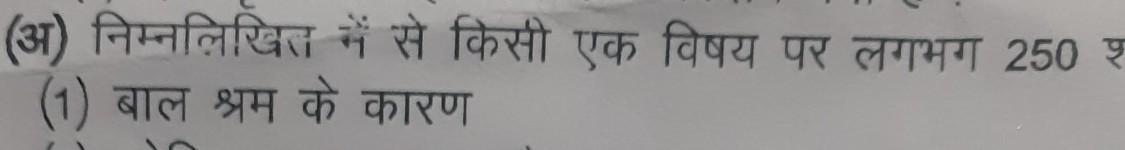 (अ) निम्नलिखित में से किसी एक विषय पर लगभग 250
(1) बाल श्रम के कारण